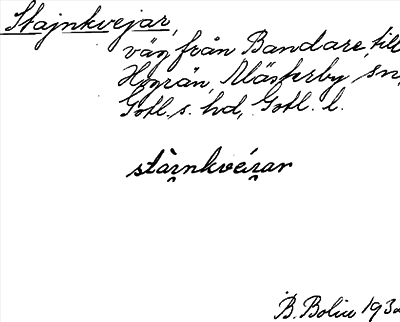 Stajnkvejar,
väg från Bandare, till
Hogrän, Mästerby sn,
Gotl. s. hd, Gotl. l.
stàɪ̯nkvéɪ̯ar
B. Bolin 193